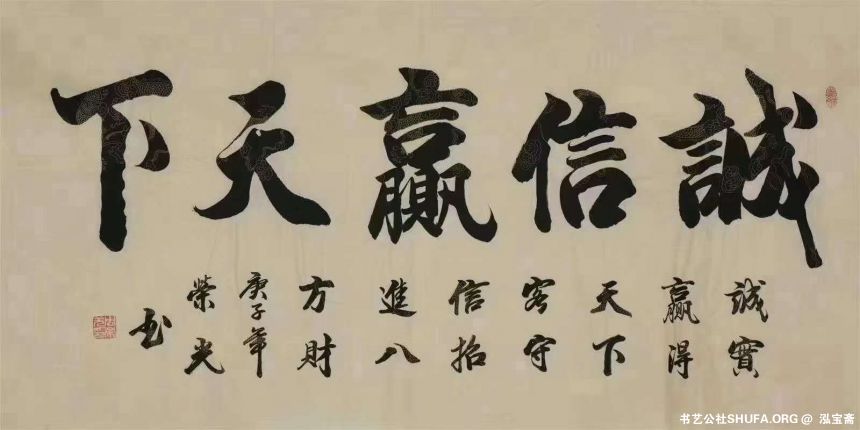 誠信贏天下
誠實
贏得
天下
客守
信招
進八
方財
庚子年
榮光
书
书艺公社SHUFA.ORG @ 泓宝斋